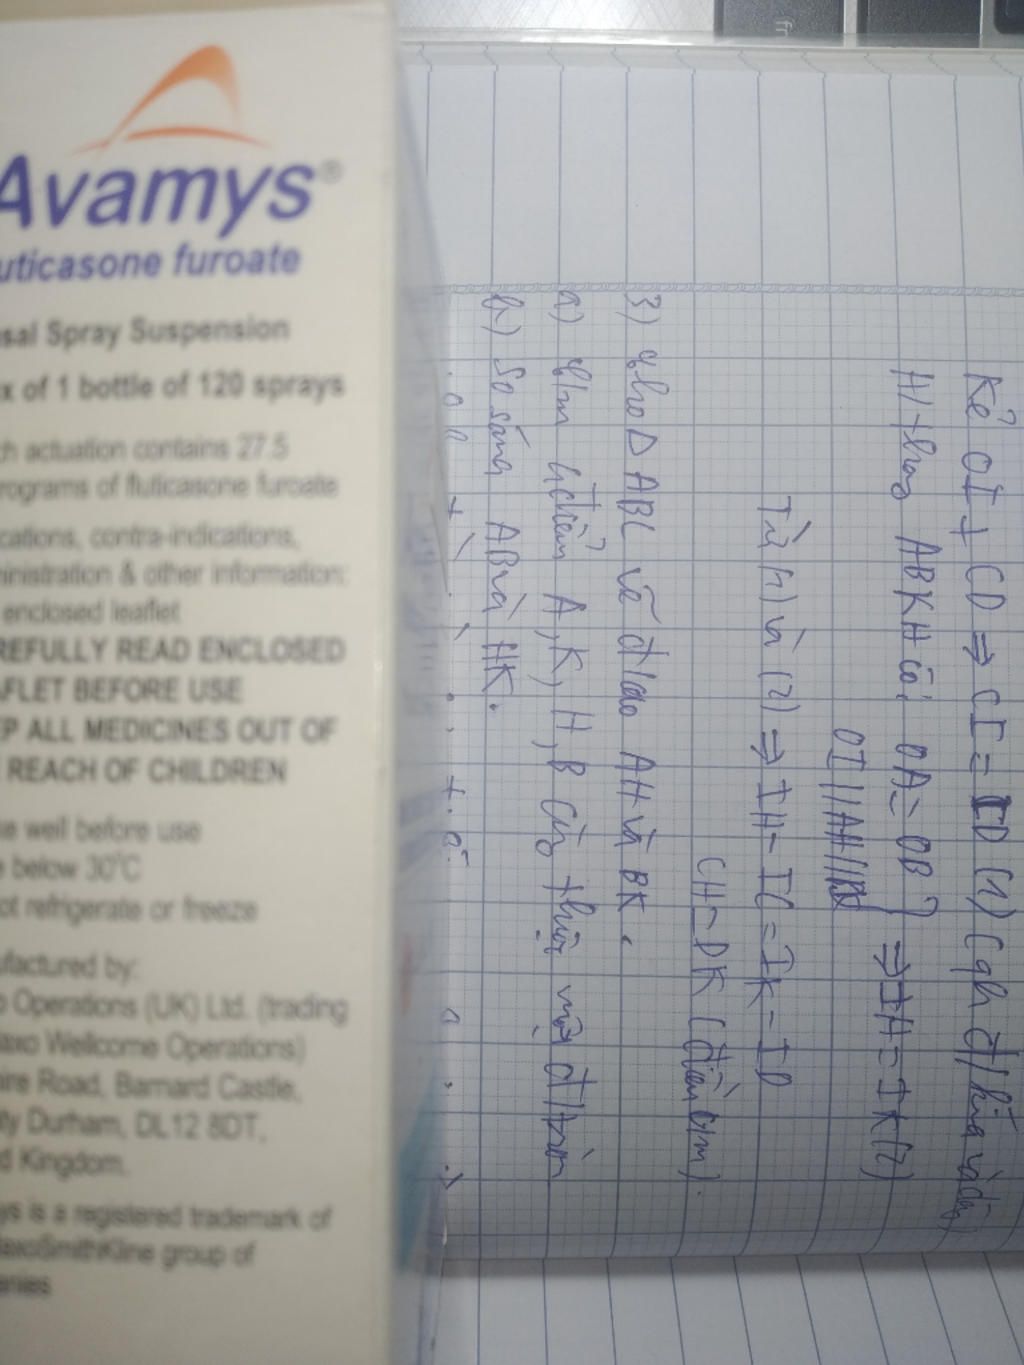 Avamys®
uticasone furoate
sal Spray Suspension
x of 1 bottle of 120 sprays
ch actuation contains 27.5
rograms of fluticasone furoate
cations, contra-indications,
ministration & other information:
enclosed leaflet
REFULLY READ ENCLOSED
AFLET BEFORE USE
EP ALL MEDICINES OUT OF
REACH OF CHILDREN
ke well before use
e below 30°C
ot refrigerate or freeze
ufactured by:
o Operations (UK) Ltd. (trading
laxo Wellcome Operations)
ire Road, Barnard Castle,
ty Durham, DL12 8DT,
d Kingdom.
ys is a registered trademark of
laxoSmithKline group of
anies
Kẻ OI ⊥ CD ⇒ CI = ID (1) (qh đ/kính và dây)
H/thang ABKH có: OA = OB } ⇒ IH = IK (2)
OI // AH // BK
Từ (1) và (2) ⇒ IH - IC = IK - ID
CH = DK (điều c/m).
3) Cho Δ ABC vẽ đ/cao AH và BK.
a) C/m 4 điểm A, K, H, B cùng thuộc một đ/tròn
b) So sánh AB và HK.
fr